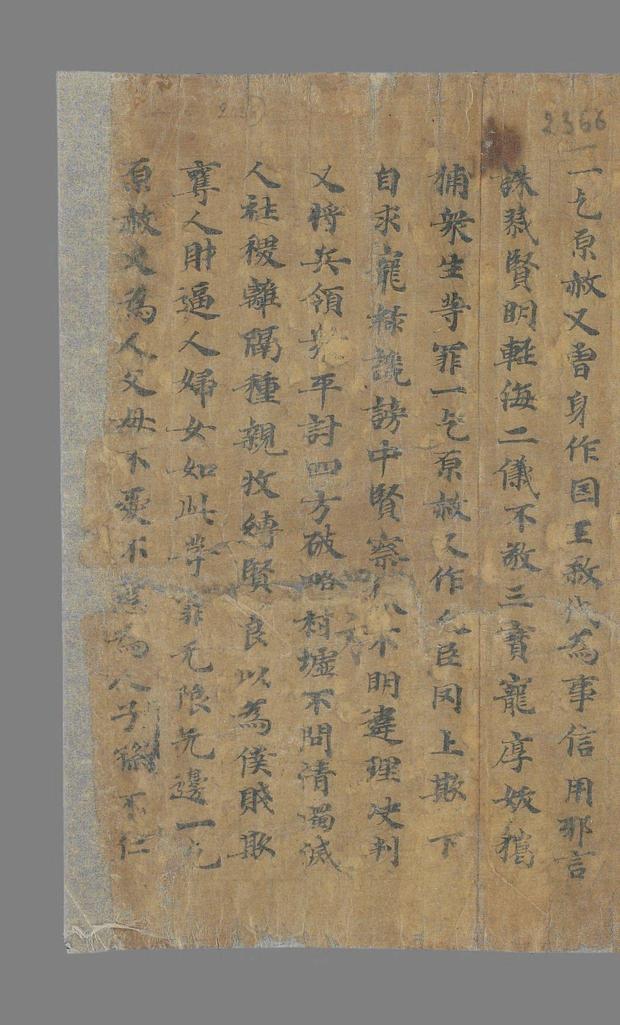 2366
一一乞原赦又曹身作国王敘伐為事信用耶言
誅戮賢明輕海二儀不敬三寶寵厚妓
衆生等罪一乞原赦又作臣冈上欺下
自求寵祿讒謗中賢察不明違理决判
又將兵領衆平討四方破略村墟不問清濁滅
人社稷離隔種親牧縛賢良以為僕賤欺
奪人財逼人婦女如此等罪无限无邊一乞
原赦又為人父母不愛不為人子孫不仁